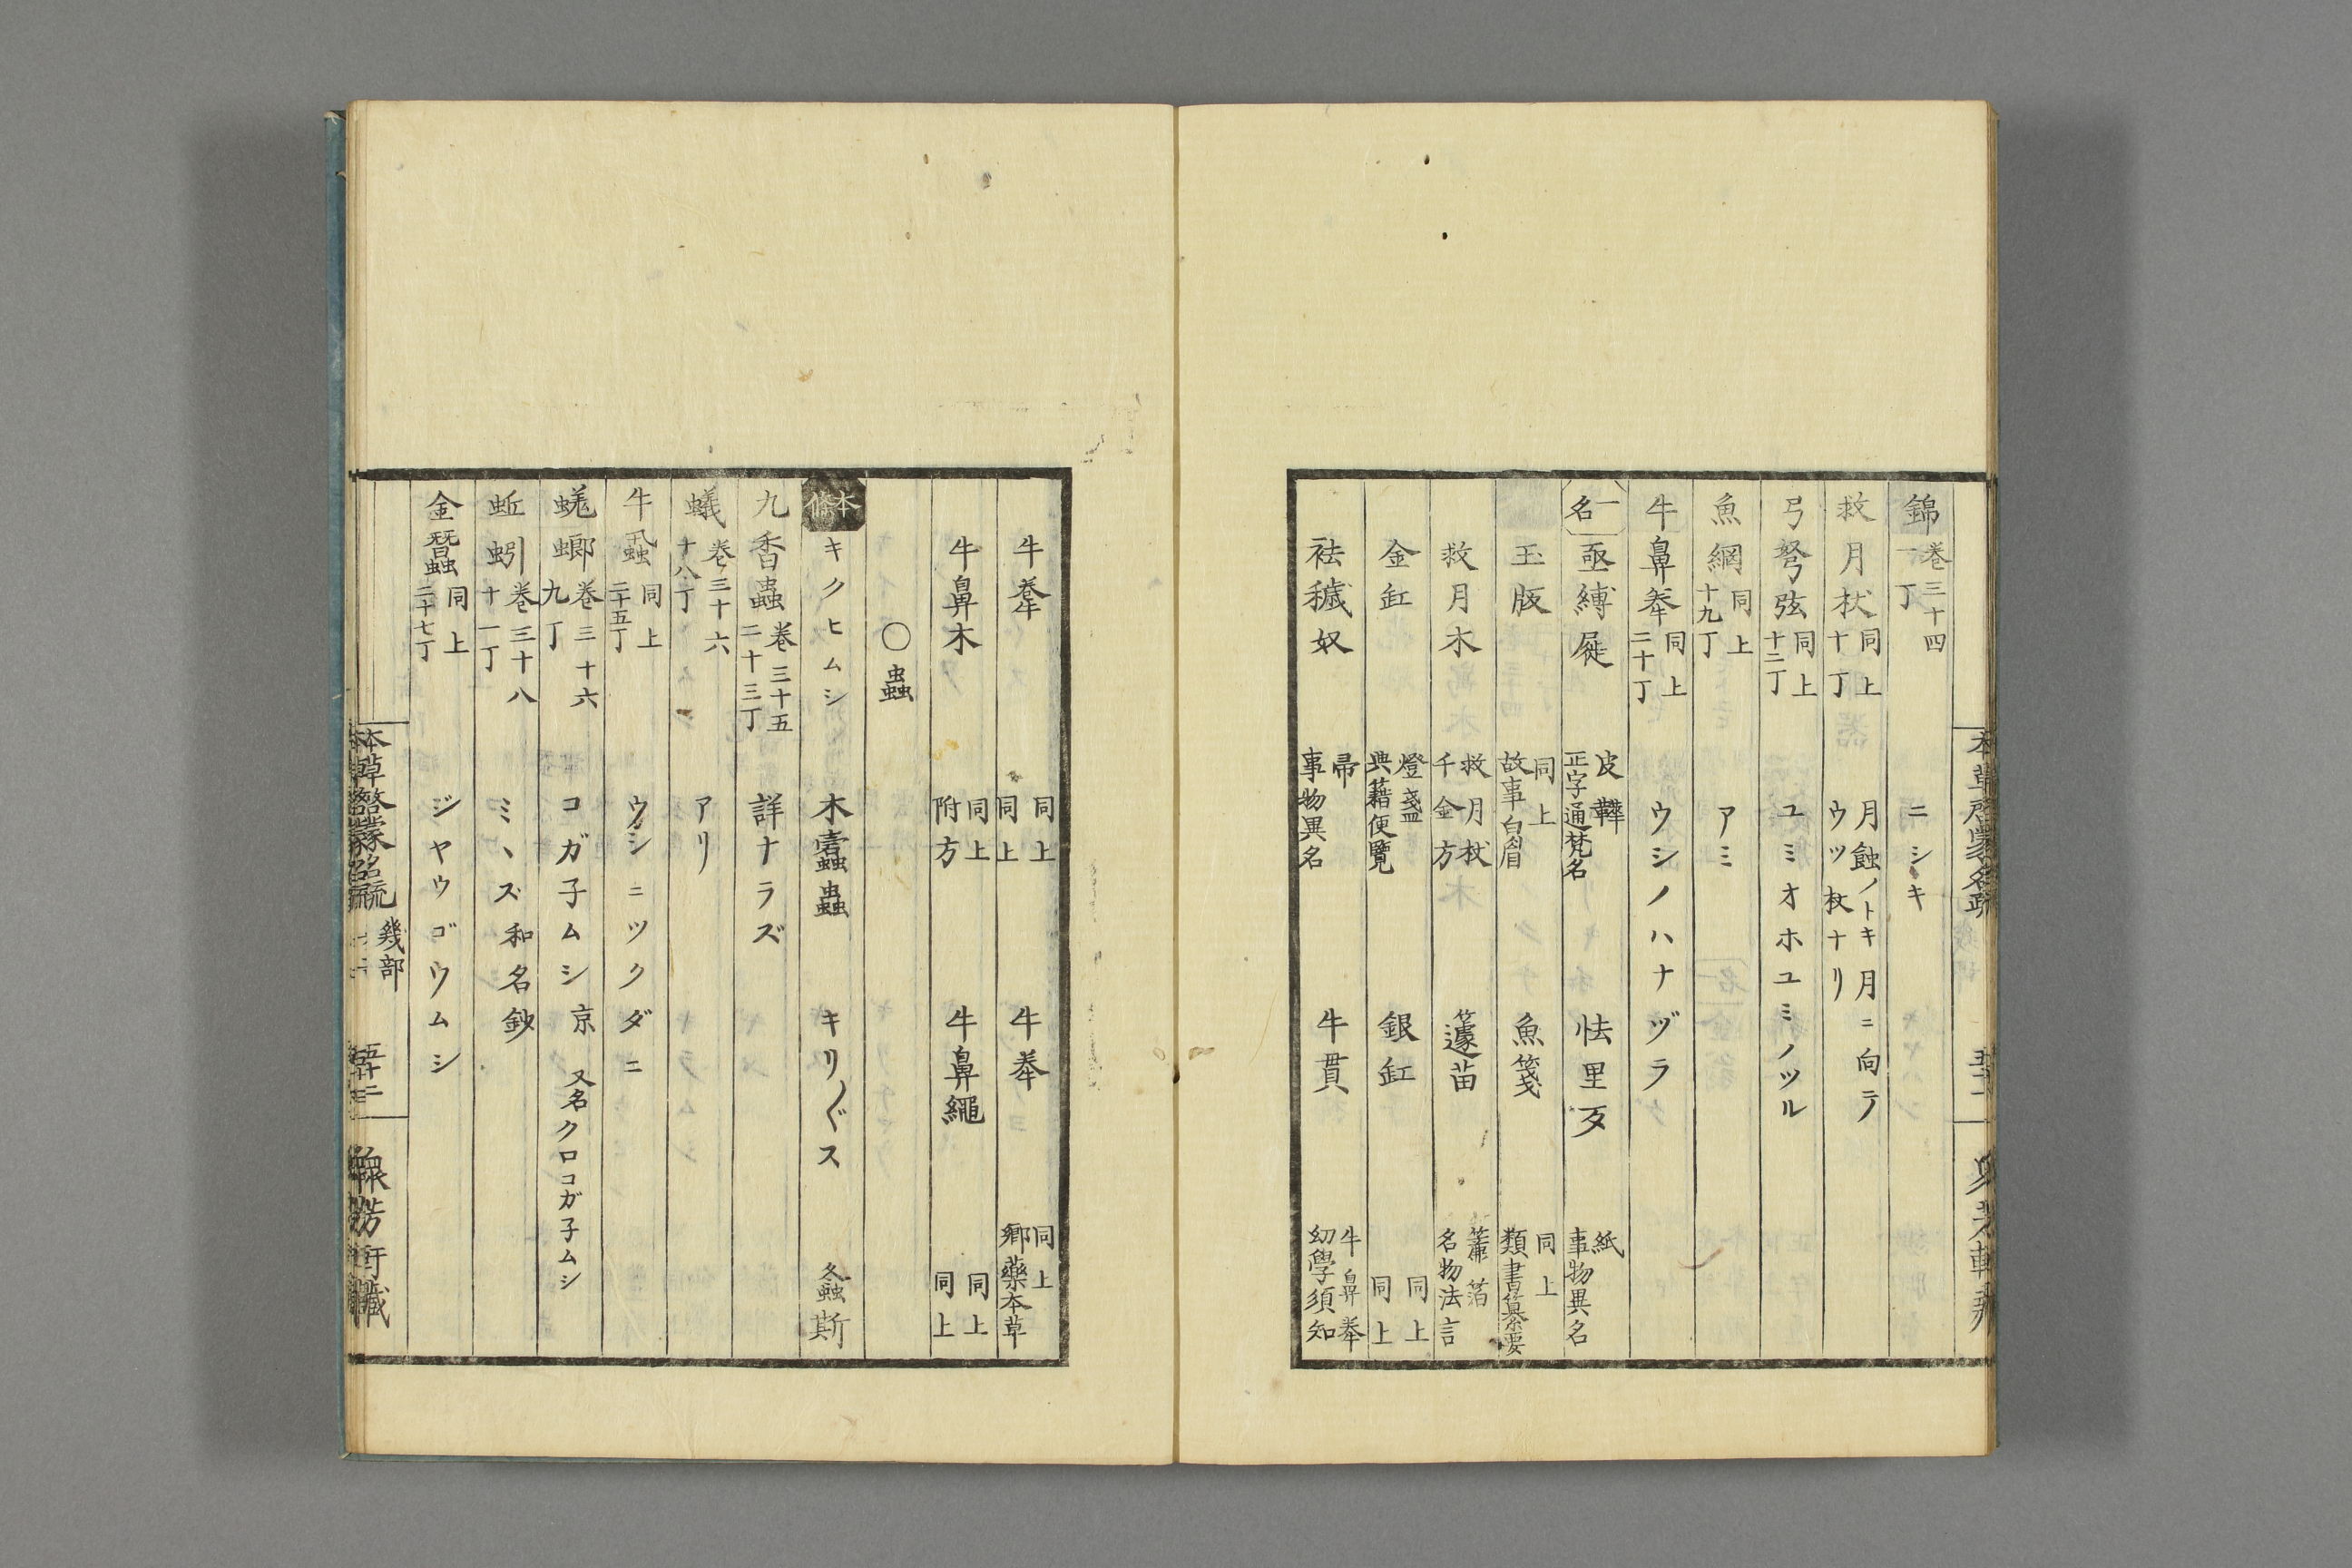 錦 卷三十四 一丁 ニシキ
救月杖 同上 十丁 月蝕ノトキ月ニ向テ ウツ杖ナリ
弓弩弦 同上 十二丁 ユミオホユミノツル
魚網 同上 十九丁 アミ
牛鼻牶 同上 二十丁 ウシノハナヅラ
一名 亟縛屣 皮鞾 正字通梵名 怯里歹 紙 事物異名
玉版 同上 故事白眉 魚箋 同上 類書纂要
救月木 救月杖 千金方 籧苗 蠶箔 名物法言
金缸 燈盞 典籍便覽 銀缸 同上 同上
袪穢奴 帚 事物異名 牛貫 牛鼻牶 幼學須知
牛桊 同上 同上 牛牶 同上 鄉藥本草
牛鼻木 同上 附方 牛鼻繩 同上 同上
〇蟲
本條 キクヒムシ 木蠹蟲 キリ〲ス 螽斯
九香蟲 卷三十五 二十三丁 詳ナラズ
蟻 卷三十六 十八丁 アリ
牛蝨 同上 二十五丁 ウシニツクダニ
蜣螂 卷三十六 九丁 コガ子ムシ 京 又名クロコガ子ムシ
蚯蚓 卷三十八 十一丁 ミヽズ 和名鈔
金蠶 同上 二十七丁 ジヤウゴウムシ
本草啓蒙名疏 幾部 五十二 衆芳軒藏